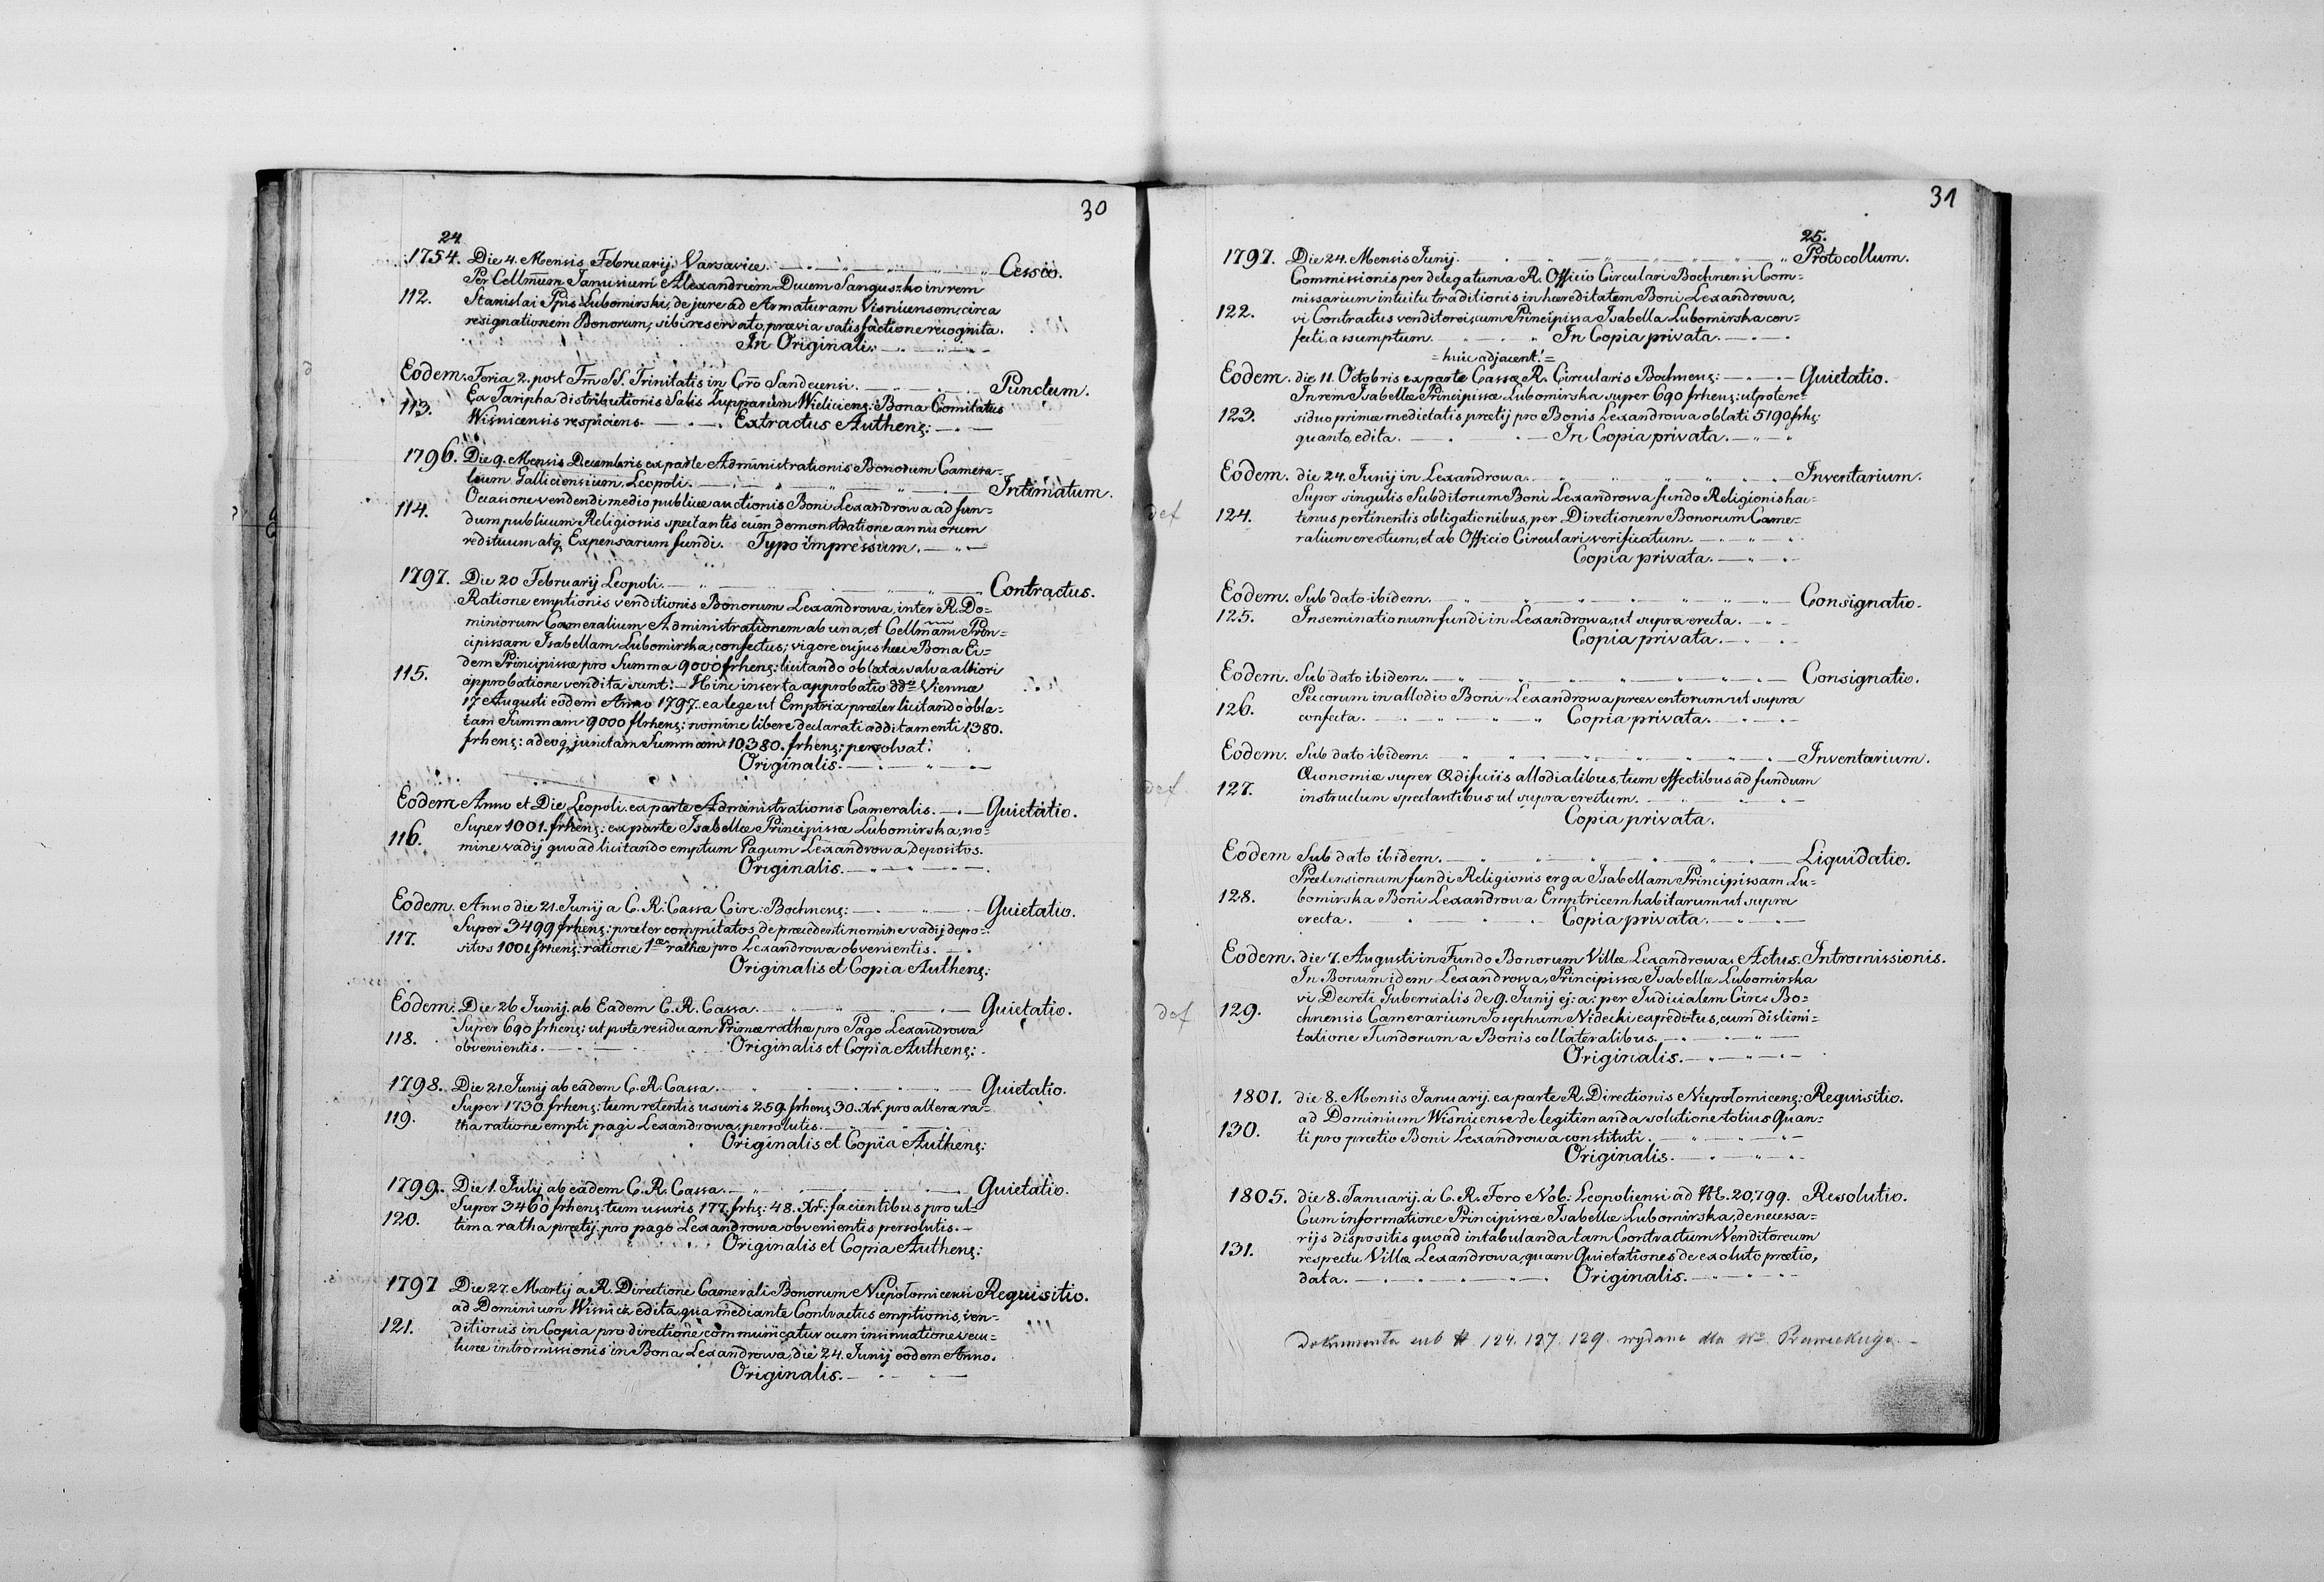 30
24.
1754. Die 4. Mensis Februarij Varsaviæ. Cessio.
Per Cellm̄um Janusium Alexandrum Ducem Sanguszko in rem
112. Stanislai Ppis Lubomirski, de jure ad Armaturam Visniunsem, circa
resignationem Bonorum, sibi reservato, prævia satisfactione recognita.
In Originali.
Eodem. Feria 2. post Fm̄ SS. Trinitatis in Crō Sandecensi. Punctum.
Ex Taripha distributionis Salis Zupparum Wieliciens: Bona Comitatus
113. Wisnicensis respiciens. Extractus Authens:
1796. Die 9. Mensis Decembris ex parte Administrationis Bonorum Camera=
lium Galliciensium Leopoli. Intimatum.
Occasione vendendi medio publicæ auctionis Boni Lexandrowa ad fun=
114. dum publicum Religionis spectantis cum demonstratione annuorum
redituum atq, Expensarum fundi. Typo impressum.
1797. Die 20 Februarij Leopoli. Contractus.
Ratione emptionis venditionis Bonorum Lexandrowa, inter R. Do=
miniorum Cameralium Administrationem ab una, et Cellmam Prin=
cipissam Isabellam Lubomirska, confectus; vigore cujus hæc Bona Ei=
dem Principissæ pro Summa 9000 frhens: licitando oblata, salva altiori
115. approbatione vendita sunt: Hinc inserta approbatio ddo Viennæ
17 Augusti eodem Anno 1797. ea lege ut Emptrix præter licitando obla=
tam Summam 9000 flrhens: nomine libere declarati additamenti 1380.
frhens: adeoq, junctam Summam 10,380. frhens: persolvat.
Originalis.
Eodem Anno et Die Leopoli. ex parte Administrationis Cameralis. Quietatio.
Super 1001. frhens: ex parte Isabellæ Principissæ Lubomirska, no=
116. mine vadij quoad licitando emptum Pagum Lexandrowa, depositos.
Originalis.
Eodem. Anno die 21. Junij a C. R. Cassa Circ: Bochnens: Quietatio.
Super 3499 frhens: præter computatos de præcedenti nomine vadij depo=
117. sitos 1001 frhens: ratione 1mæ rathæ pro Lexandrowa obvenientis.
Originalis et Copia Authens:
Eodem. Die 26 Junij. ab Eadem C. R. Cassa. Quietatio.
Super 690 frhens: ut pote residuam Primæ rathæ pro Pago Lexandrowa
118. obvenientis. Originalis et Copia Authens:
1798. Die 21. Junij ab eadem C. R. Cassa. Quietatio.
Super 1730 frhens: tum retentis usuris 259. frhens 30. Xr. pro altera ra=
119. tha ratione empti pagi Lexandrowa, persolutis.
Originalis et Copia Authens:
1799. Die 1. Julij ab eadem C. R. Cassa. Quietatio.
Super 3460 frhens: tum usuris 177. frhs: 48. Xr. facientibus pro ul=
120. tima ratha prætij, pro pago Lexandrowa obvenientis persolutis.
Originalis et Copia Authens:
1797 Die 27. Martij a R. Directione Camerali Bonorum Niepołomicensi Requisitio.
ad Dominium Wisnicz edita, qua mediante Contractus emptionis, ven=
121. ditionis in Copia pro directione communicatur cum insinuatione secu=
turæ intromissionis in Bona Lexandrowa, die 24. Junij eodem Anno.
Originalis.
31
25.
1797. Die 24. Mensis Junij. Protocollum.
Commissionis per delegatum a R. Officio Circulari Bochnensi Com=
missarium intuitu traditionis in hæreditatem Boni Lexandrowa,
122. vi Contractus venditorei, cum Principissa Isabella Lubomirska con=
fecti, assumptum. In Copia privata.
= huic adjacent: =
Eodem. die 11. Octobris ex parte Cassæ R. Circularis Bochnens: Quietatio.
In rem Isabellæ Principissæ Lubomirska super 690 frhens: utpote re=
123. siduo primæ medietatis prætij pro Bonis Lexandrowa oblati 5190 frhs:
quanto, edita. In Copia privata.
Eodem. die 24. Junij in Lexandrowa. Inventarium.
Super singulis Subditorum Boni Lexandrowa fundo Religionis hac=
def 124. tenus pertinentis obligationibus, per Directionem Bonorum Came=
ralium erectum, et ab Officio Circulari verificatum.
Copia privata.
Eodem. Sub dato ibidem. Consignatio.
125. Inseminationum fundi in Lexandrowa, ut supra erecta.
Copia privata.
Eodem. Sub dato ibidem. Consignatio.
Pecorum in allodio Boni Lexandrowa præventorum ut supra
126. confecta. Copia privata.
Eodem. Sub dato ibidem. Inventarium.
Œconomiæ super Ædificiis allodialibus, tum effectibus ad fundum
def 127. instructum spectantibus ut supra erectum.
Copia privata.
Eodem Sub dato ibidem. Liquidatio.
Prætensionum fundi Religionis erga Isabellam Principissam Lu=
128. bomirska Boni Lexandrowa Emptricem habitarum ut supra
erecta. Copia privata.
Eodem. die 7. Augusti in Fundo Bonorum Villæ Lexandrowa. Actus. Intromissionis.
In Bonum idem Lexandrowa, Principissæ Isabellæ Lubomirska
vi Decreti Gubernialis de 9. Junij ej: a: per Judicialem Circ: Bo=
def 129. chnensis Camerarium Josephum Nidecki expeditus, cum dislimi=
tatione Fundorum a Bonis collateralibus.
Originalis.
1801. die 8. Mensis Januarij. ex parte R. Directionis Niepołomicens: Requisitio.
ad Dominium Wisnicense de legitimanda solutione totius Quan=
130. ti pro prætio Boni Lexandrowa constituti.
Originalis.
1805. die 8. Januarij. à C. R. Foro Nob: Leopoliensi ad NE. 20,799. Resolutio.
Cum informatione Principissæ Isabellæ Lubomirska, de necessa=
rijs dispositis quoad intabulanda tam Contractum Venditoreum
131. respectu Villæ Lexandrowa, quam Quietationes de exoluto prætio,
data. Originalis.
Dokumenta sub # 124. 127. 129. wydane dla Wo